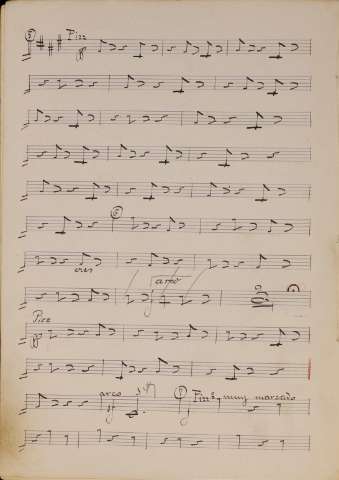 5
Pizz
p
6
cres
arco
Pizz
p
arco
sf
Pizz y muy marcado